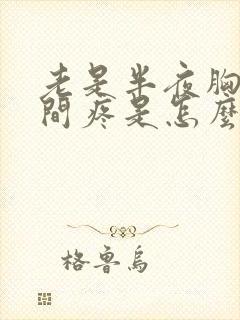 老是半夜胸
間疼是怎麼
格魯烏